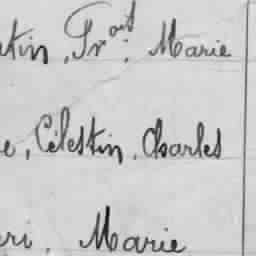 tin, Fr.ois Marie
e, Célestin, Charles
ri, Marie